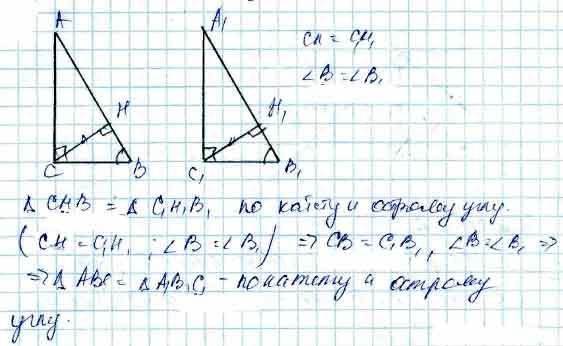 A A₁
CH = C₁H₁
∠B = ∠B₁
H H₁
C B C₁ B₁
Δ CHB = Δ C₁H₁B₁ по катету и острому углу.
(CH = C₁H₁ ; ∠B = ∠B₁) ⇒ CB = C₁B₁, ∠B = ∠B₁ ⇒
⇒ Δ ABC = Δ A₁B₁C₁ - по катету и острому
углу.